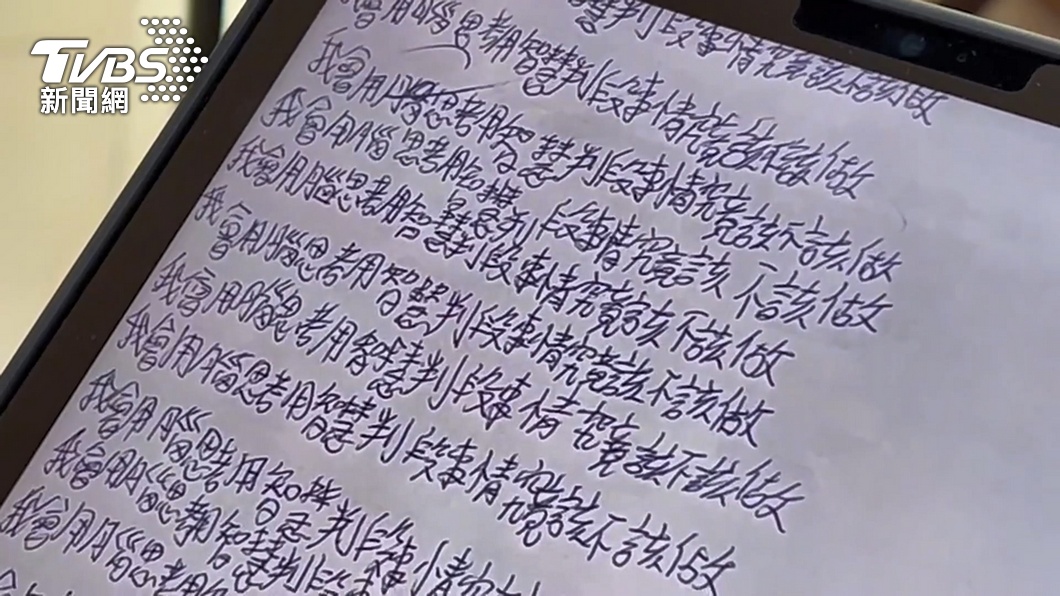 TVBS
新聞網
慧判段事情究竟該不該做
我會用腦思考用智慧判段事情究竟該不該做
我會用腦思考用智慧判段事情究竟該不該做
我會用腦思考用智慧判段事情究竟該不該做
我會用腦思考用智慧判段事情究竟該不該做
我會用腦思考用智慧判段事情究竟該不該做
我會用腦思考用智慧判段事情究竟該不該做
我會用腦思考用智慧判段事情究竟該不該做
我會用腦思考用智慧判段事情究竟該不該做
我會用腦思考用智慧判段事情究
我會用腦思考用智慧判段事